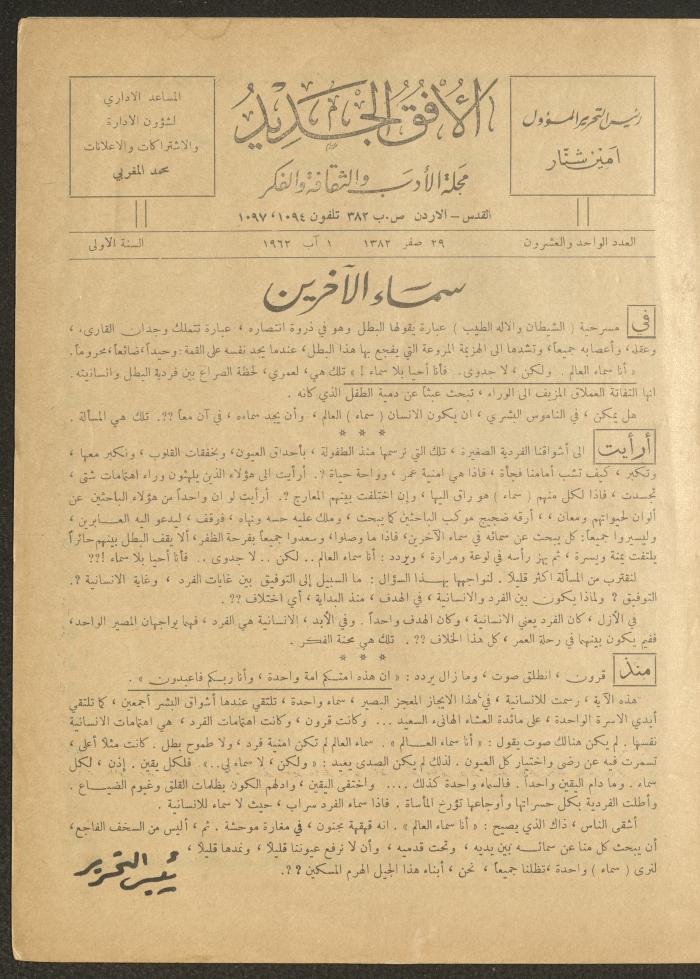 رئيس التحرير المسؤول
امين شنّار
الأفق الجديد
مجلة الأدب والثقافة والفكر
القدس – الاردن ص.ب ٣٨٢ تلفون ١٠٩٤ ، ١٠٩٧
المساعد الاداري
لشؤون الادارة
والاشتراكات والاعلانات
محمد المغربي
العدد الواحد والعشرون
٢٩ صفر ١٣٨٢ ١ آب ١٩٦٢
السنة الاولى
سماء الآخرين
في مسرحية ( الشيطان والاله الطيب ) عبارة يقولها البطل وهو في ذروة انتصاره ، عبارة تتملك وجدان القارىء ،
وعقله، وأعصابه جميعاً، وتشدها الى الهزيمة المروعة التي يفجع بها هذا البطل، عندما يجد نفسه على القمة: وحيداً، ضائعاً، محروماً.
« أنا سماء العالم . ولكن ، لا جدوى. فأنا أحيا بلا سماء ! » تلك هي، لعمري، لحظة الصراع بين فردية البطل وانسانيته.
انها التفاتة العملاق المزيف الى الوراء ، تبحث عبثاً عن دمية الطفل الذي كانه .
هل يمكن ، في الناموس البشري ، ان يكون الانسان ( سماء ) العالم ، وأن يجد سماءه ، في آن معاً ؟؟. تلك هي المسألة .
* * *
أرأيت الى أشواقنا الفردية الصغيرة ، تلك التي نرسمها منذ الطفولة ، بأحداق العيون، وبخفقات القلوب ، ونكبر معها ،
وتكبر ، كيف تشب أمامنا فجأة ، فاذا هي امنية عمر ، وواحة حياة ؟. أرأيت الى هؤلاء الذين يلهثون وراء اهتمامات شتى ،
تجسدت ، فاذا لكل منهم ( سماء ) هو راق اليها ، وإن اختلفت بينهم المعارج ؟. أرأيت لو ان واحداً من هؤلاء الباحثين عن
ألوان لحيواتهم ومعان ، ، أرقه ضجيج موكب الباحثين كما يبحث ، وملك عليه حسه ونهاه ، فوقف ، ليدعو اليه العـابرين ،
وليسيروا جميعاً: كل يبحث عن سمائه في سماء الآخرين، فاذا ما وصلوا، وسعدوا جميعاً بفرحة الظفر، ألا يقف البطل بينهم حائراً
يلتفت يمنة ويسرة ، ثم يهز رأسه في لوعة ومرارة ، ويردد : أنا سماء العالم .. لكن .. لا جدوى .. فأنا أحيا بلا سماء !؟؟
لنقترب من المسألة اكثر قليلاً . لنواجهها بهـذا السؤال : ما السبيل إلى التوفيق بين غايات الفرد ، وغاية الانسانية ؟.
التوفيق ؟ ولماذا يكون بين الفرد والانسانية ، في الهدف ، منذ البداية ، أي اختلاف ؟؟ .
في الأزل ، كان الفرد يعني الانسانية ، وكان الهدف واحداً . وفي الأبد ، الانسانية هي الفرد ، فهما يواجهان المصير الواحد،
ففيم يكون بينهما في رحلة العمر ، كل هذا الخلاف ؟؟ . تلك هي محنة الفكر .
* * *
منذ قرون ، انطلق صوت ، وما زال يردد : « ان هذه امتكم امة واحدة ، وأنا ربكم فاعبدون » .
هذه الآية ، رسمت للانسانية ، في هذا الايجاز المعجز البصير ، سماء واحدة ، تلتقي عندها أشواق البشر أجمعين ، كما تلتقي
أيدي الاسرة الواحدة ، على مائدة العشاء الهانىء السعيد ... وكانت قرون ، وكانت اهتمامات الفرد ، هي اهتمامات الانسانية
نفسها . لم يكن هنالك صوت يقول : « أنا سماء العـالم » . سماء العالم لم تكن امنية فرد ، ولا طموح بطل . كانت مثلاً أعلى ،
تسمرت فيه عن رضى واختيار كل العيون . لذلك لم يكن الصدى يعيد : « ولكن ، لا سماء لي..» . فلكل يقين . إذن ، لكل
سماء . وما دام اليقين واحداً . فالسماء واحدة كذلك .... واختفى اليقين ، وادلهم الكون بظلمات القلق وغيوم الضياع .
وأطلت الفردية بكل حسراتها وأوجاعها تؤرخ المأساة . فاذا سماء الفرد سراب ، حيث لا سماء للانسانية .
أشقى الناس ، ذاك الذي يصيح : « أنا سماء العالم » . انه قهقهة مجنون ، في مغارة موحشة . ثم ، أليس من السخف الفاجع ،
أن يبحث كل منا عن سمائـه بين يديه ، وتحت قدميه ، وأن لا نرفع عيوننا قليلاً ، ونمدها قليلاً ،
لنرى ( سماء ) واحدة ، تظلنا جميعاً ، نحن ، أبناء هذا الجيل الهرم المسكين ؟؟.
رئيس التحرير